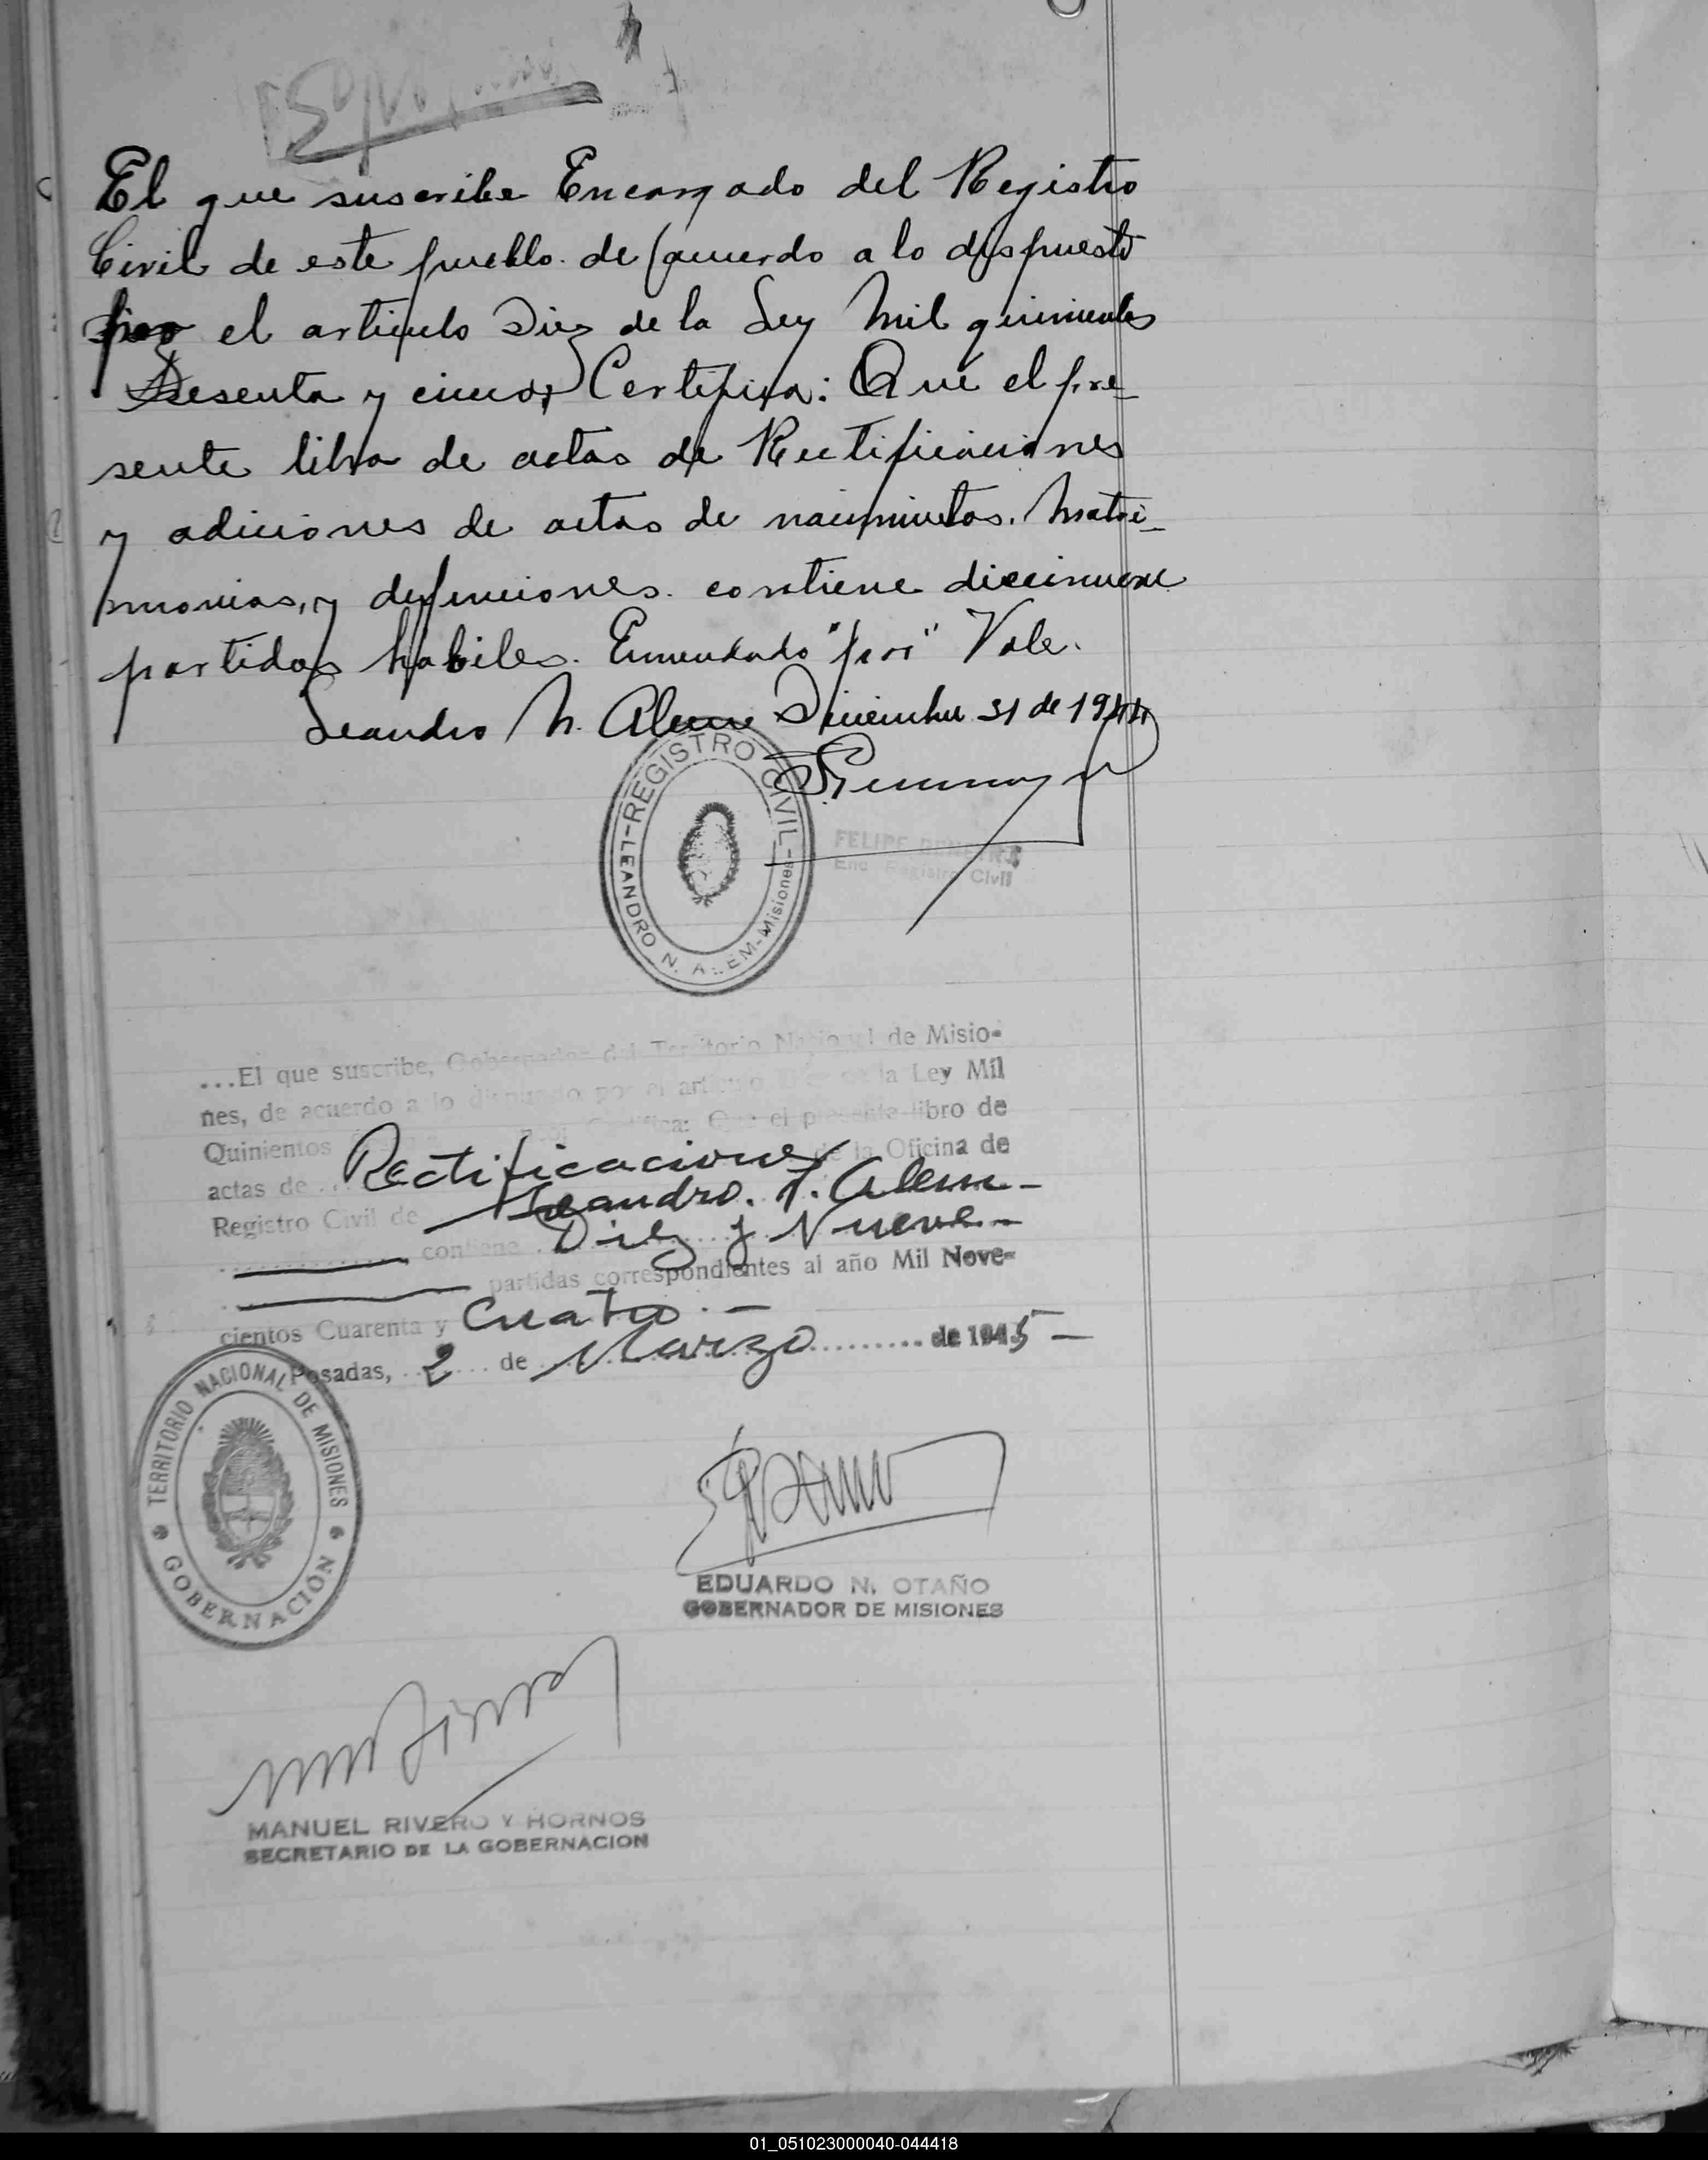 El que suscribe Encargado del Registro
Civil de este pueblo de acuerdo a lo dispuesto
por el articulo Diez de la Ley Mil quinientos
sesenta y cinco, Certifica: Que el pre-
sente libro de actas de Rectificaciones
y adiciones de actas de nacimientos, matri-
monios, y defunciones. contiene diecinueve
partidas habiles. Enmendado "por" Vale.
Leandro N. Alem Diciembre 31 de 1944
REGISTRO CIVIL - LEANDRO N. ALEM - Misiones
FELIPE
Enc. Registro Civil
...El que suscribe, Gobernador del Territorio Nacional de Misio-
nes, de acuerdo a lo dispuesto por el artículo Diez de la Ley Mil
Quinientos Certifica: Que el presente libro de
actas de Rectificaciones de la Oficina de
Registro Civil de Leandro. N. Alem-
contiene Diez y Nueve-
partidas correspondientes al año Mil Nove-
cientos Cuarenta y Cuatro.-
Posadas, 2 de Marzo de 1945-
TERRITORIO NACIONAL DE MISIONES
GOBERNACIÓN
EDUARDO N. OTAÑO
GOBERNADOR DE MISIONES
MANUEL RIVERO Y HORNOS
SECRETARIO DE LA GOBERNACION
01_051023000040-044418